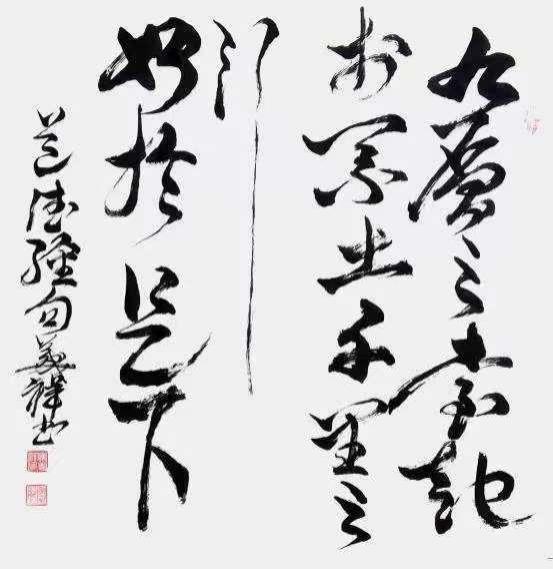 九層之臺起
於累土千里之
行
始於足下
道德經句書